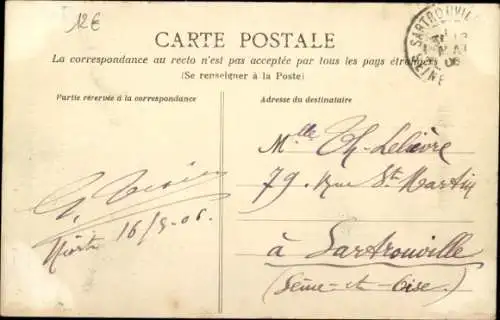 12€
SARTROUVILLE
CARTE POSTALE
La correspondance au recto n'est pas acceptée par tous les pays étrangers
(Se renseigner à la Poste)
Partie réservée à la correspondance
Adresse du destinataire
Mlle Th. Lelièvre
79. Rue St Martin
à Sartrouville
(Seine-et-Oise)
Niort 16/5-06.